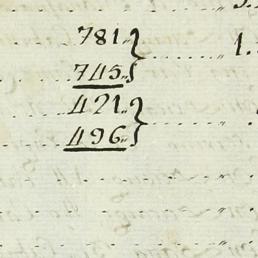 781
745
421
496